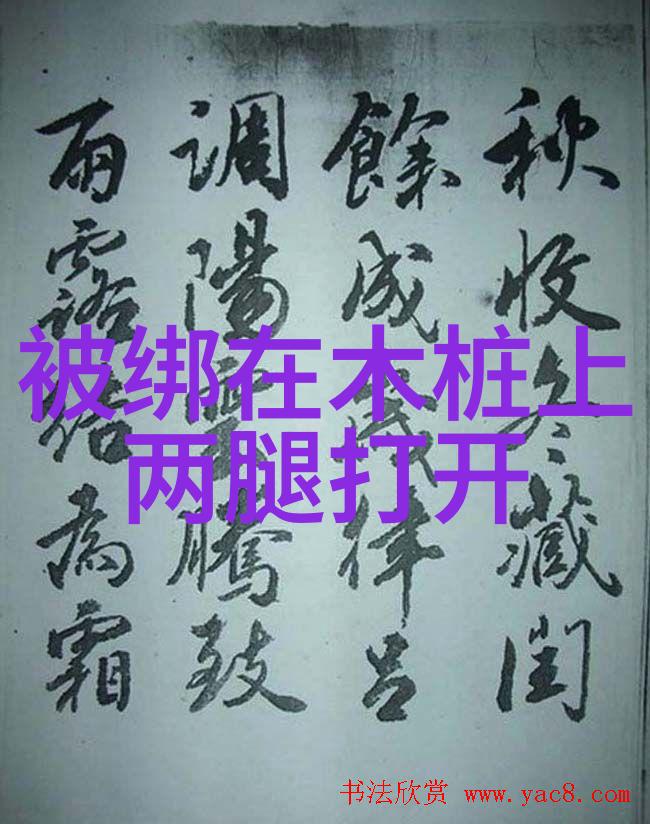 秋收冬藏閏
餘成歲律呂
調陽雲騰致
雨露結為霜
被绑在木桩上
两腿打开
书法欣赏 www.yac8.com